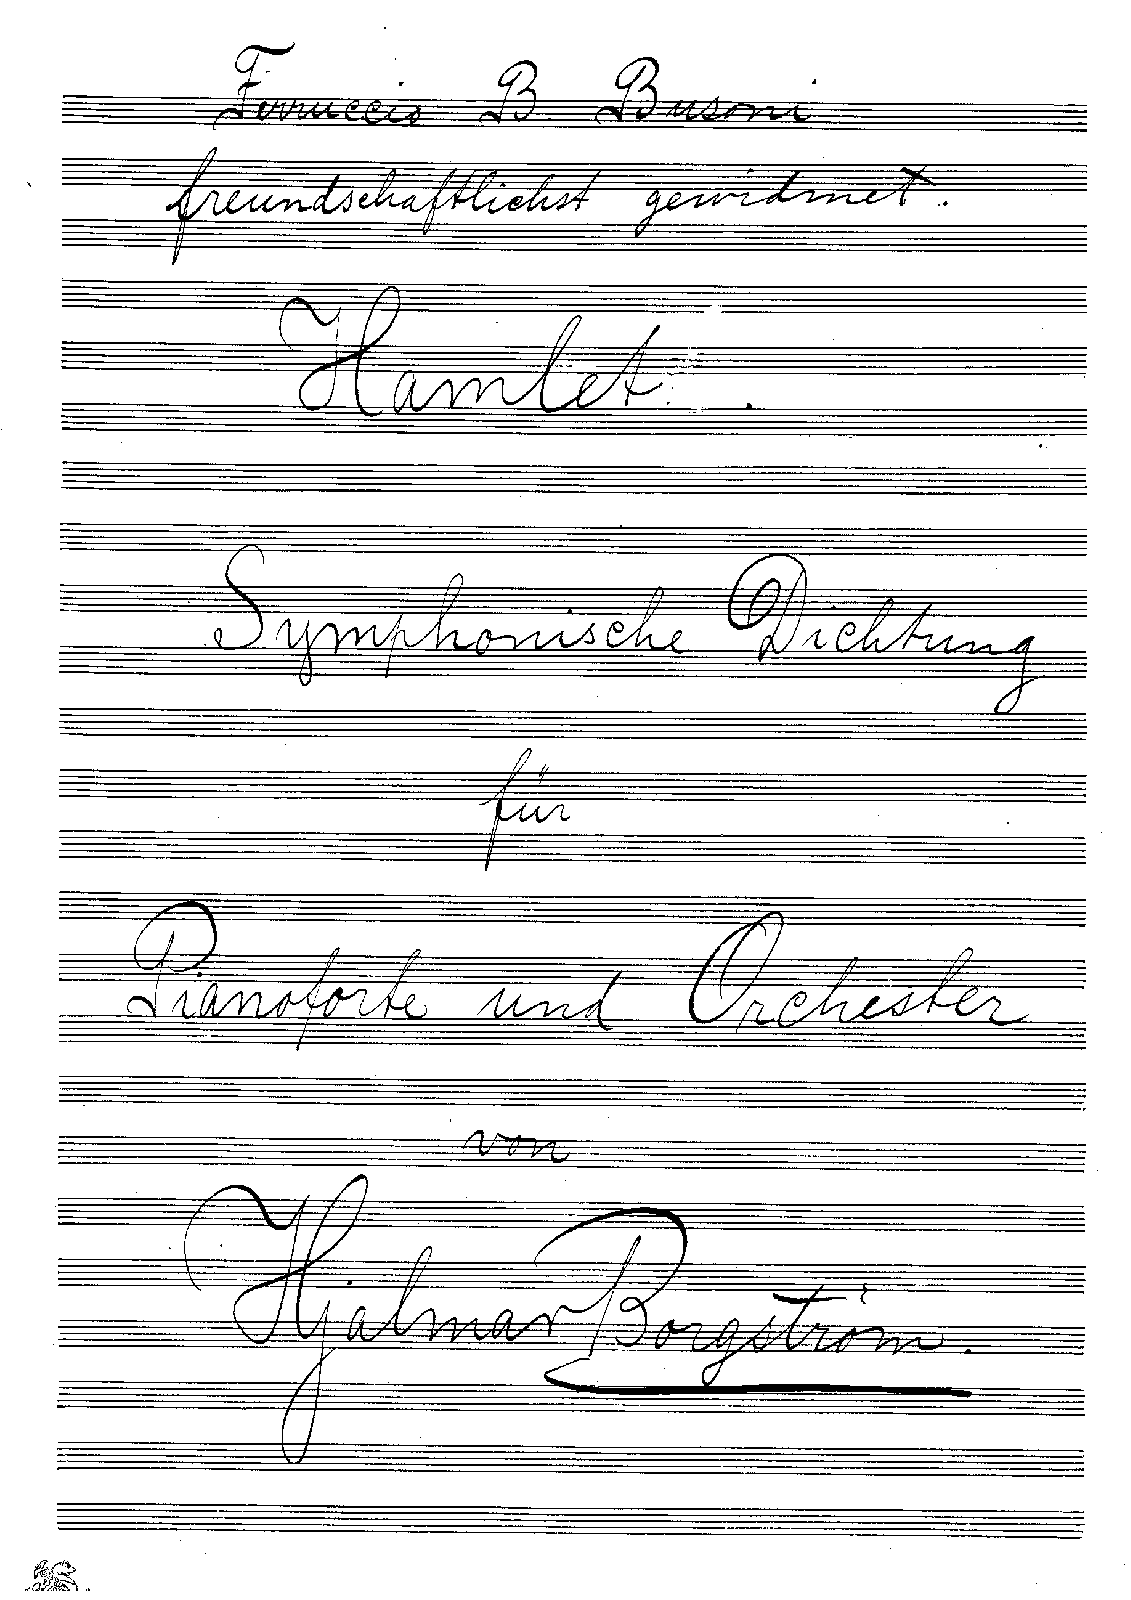 Ferruccio B. Busoni
freundschaftlichst gewidmet.
Hamlet.
Symphonische Dichtung
für
Pianoforte und Orchester
von
Hjalmar Borgström.